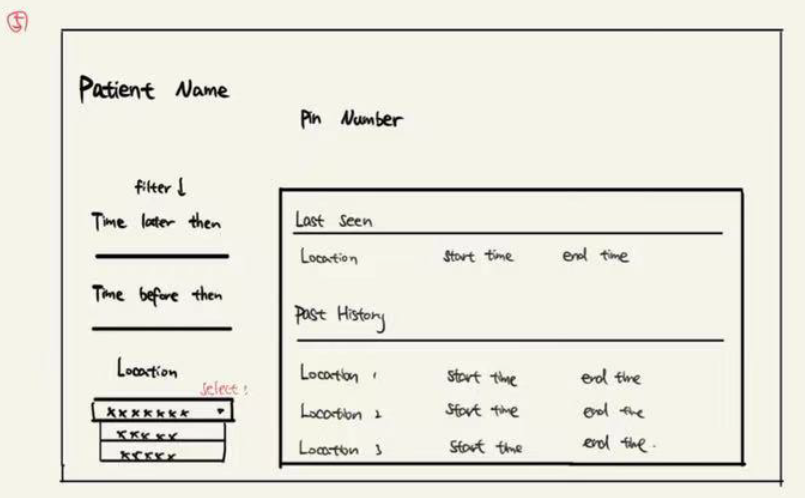 5
Patient Name
Pin Number
filter ↓
Time later then
Time before then
Location
select:
xxxxxxx
xxxxx
xxxxx
Last Seen
Location start time end time
Past History
Location 1 start time end time
Location 2 start time end time
Location 3 start time end time.